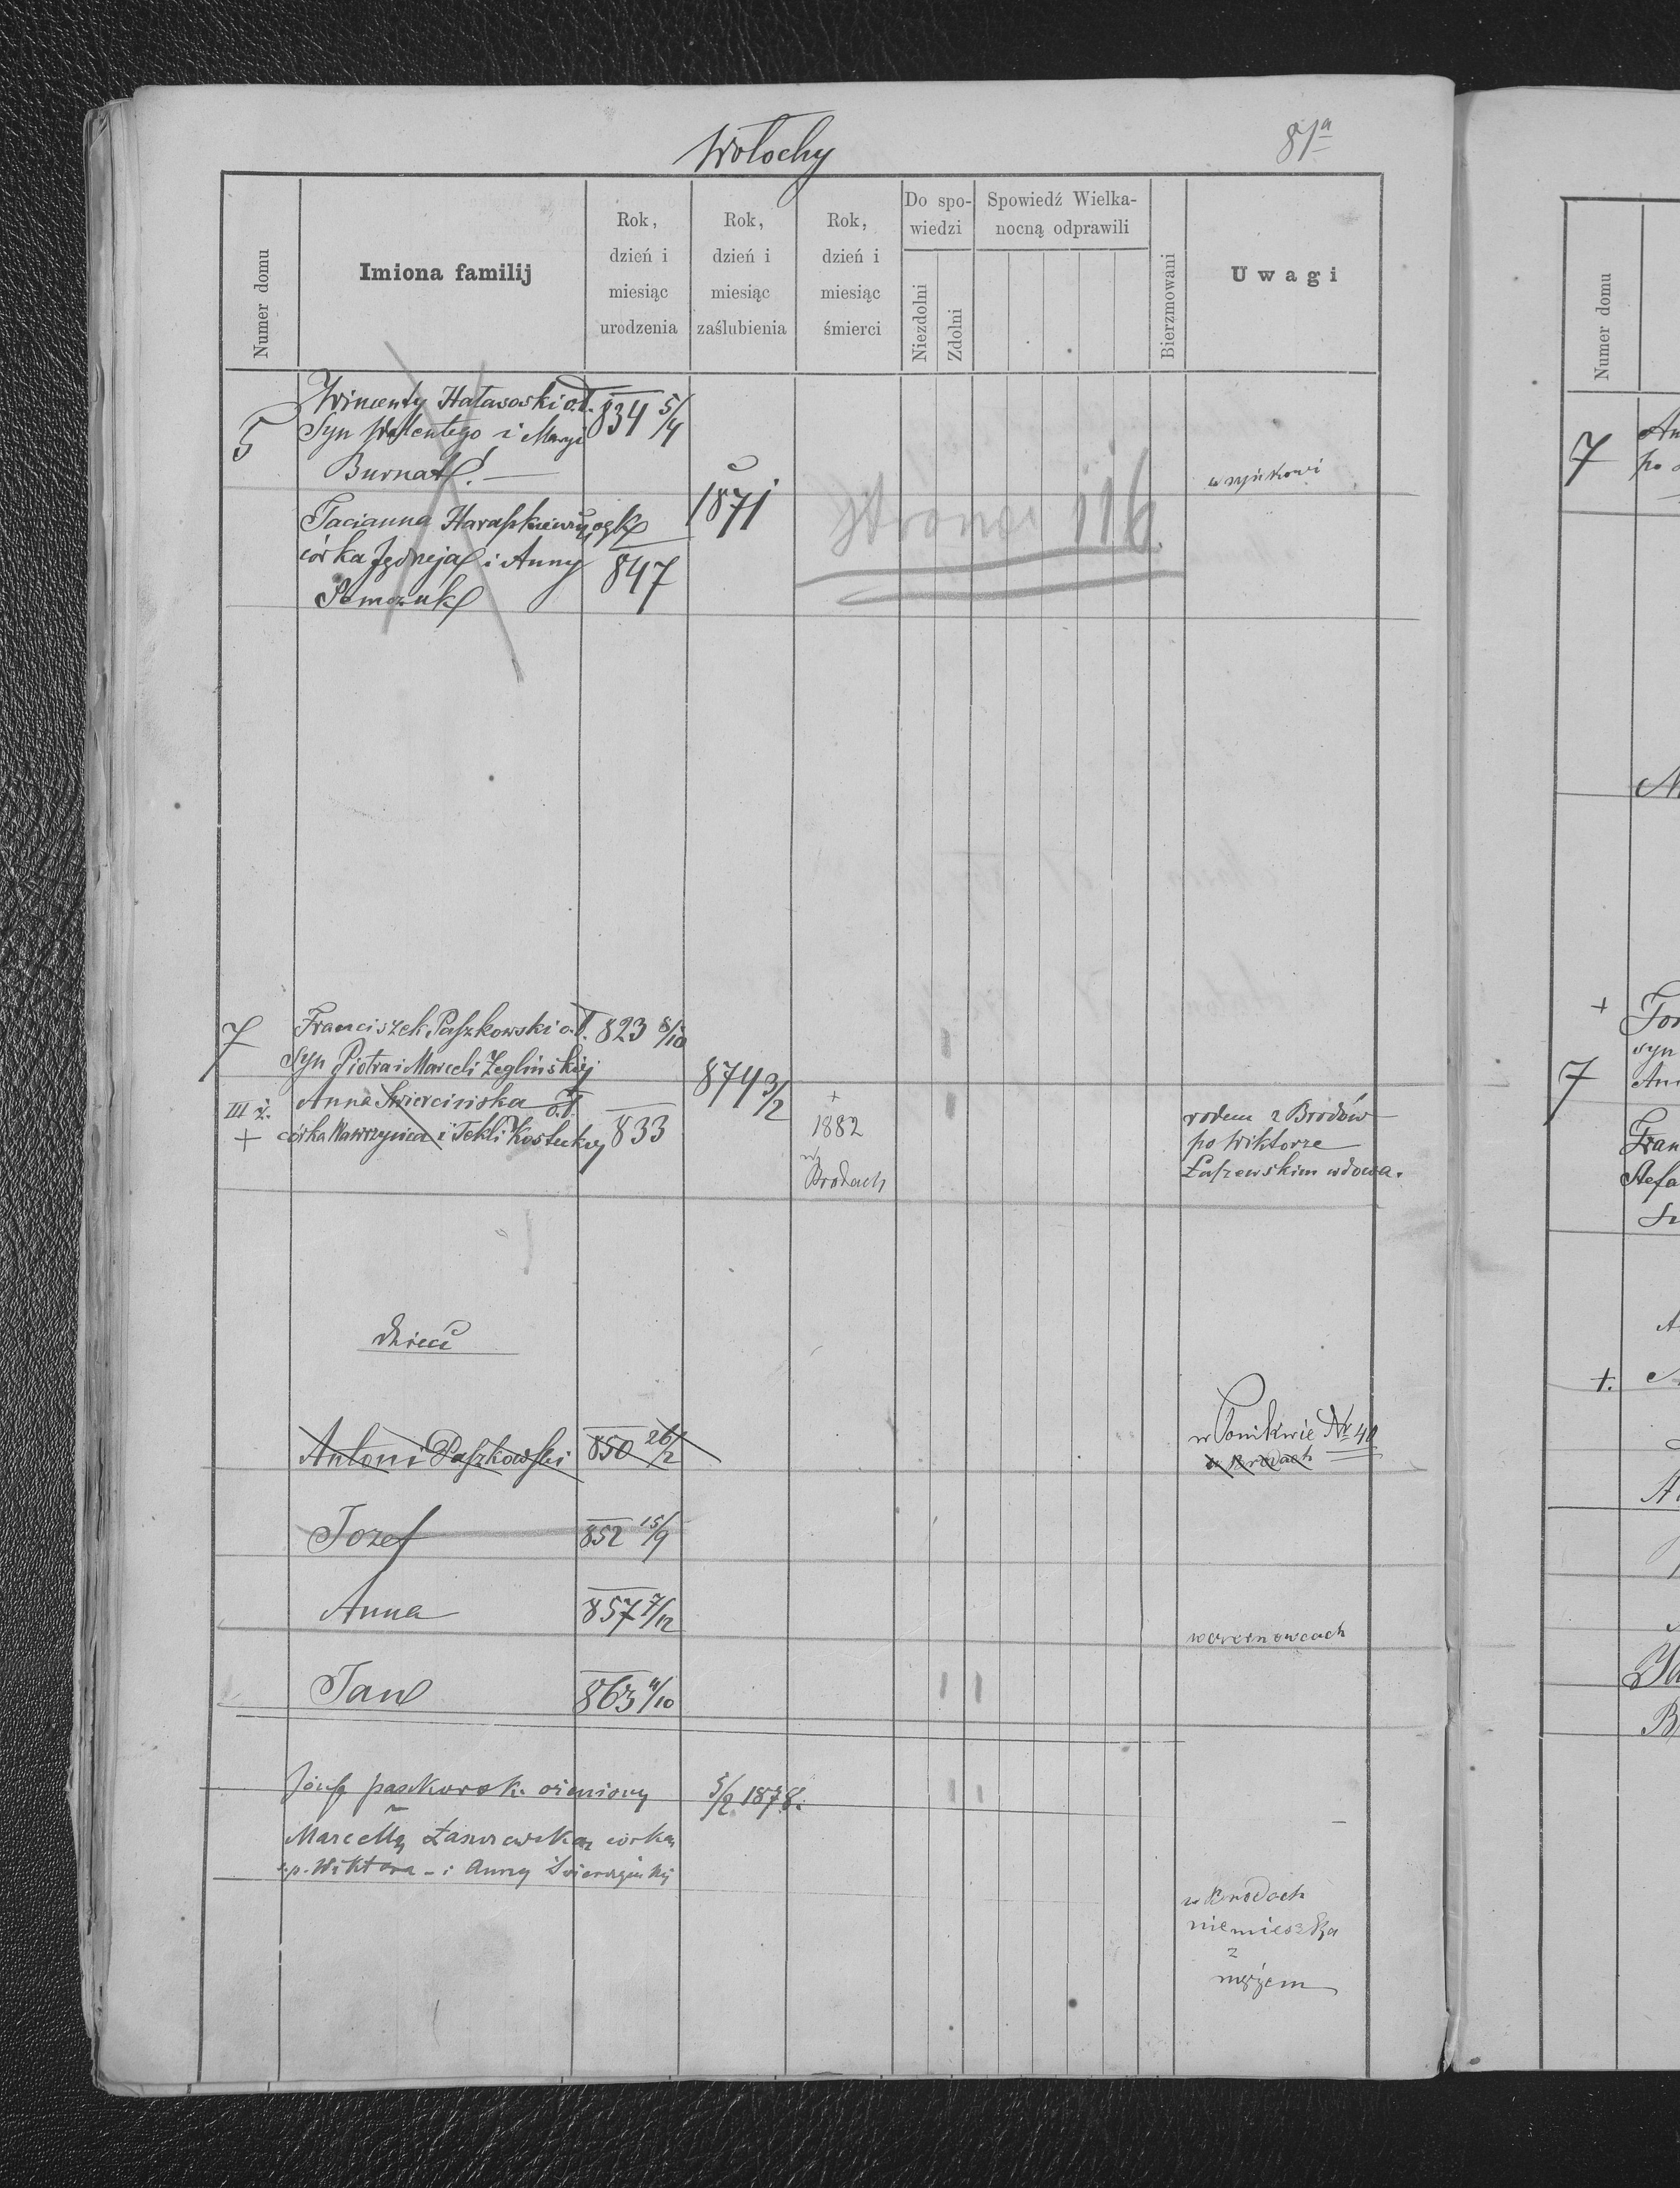 Wołochy
87a
Numer domu
Imiona familij
Rok, dzień i miesiąc urodzenia
Rok, dzień i miesiąc zaślubienia
Rok, dzień i miesiąc śmierci
Do spowiedzi
Niezdolni
Zdolni
Spowiedź Wielkanocną odprawili
Bierzmowani
Uwagi
5
Wincenty o.ł. 834 5/4
Syn Walentego i Maryi
Burnat
1871
strona 116.
Tacianna
córka Jędrzeja i Anny 847
7 Franciszek Paszkowski o.ł. 823 8/10
Syn Piotra i Marceli Żeglińskiej
874 3/2
III ż. Anna Świercińska o.ł.
+ córka Wawrzyńca i Tekli Kosteckiej 833
+
1882
w
Brodach
rodem z Brodów
po Wiktorze
Łaszewskim wdowa.
dzieci
Antoni Paszkowski 850 26/2
w Ponikwie Nr 40
w Brodach
Jozef 852 15/9
Anna 857 7/12
Jan 863 4/10
Józef ożeniony 5/2 1878.
Marcella córka
ś.p. Wiktora i Anny
w Brodach
niemieszka
z
mężem
Numer domu
7
7